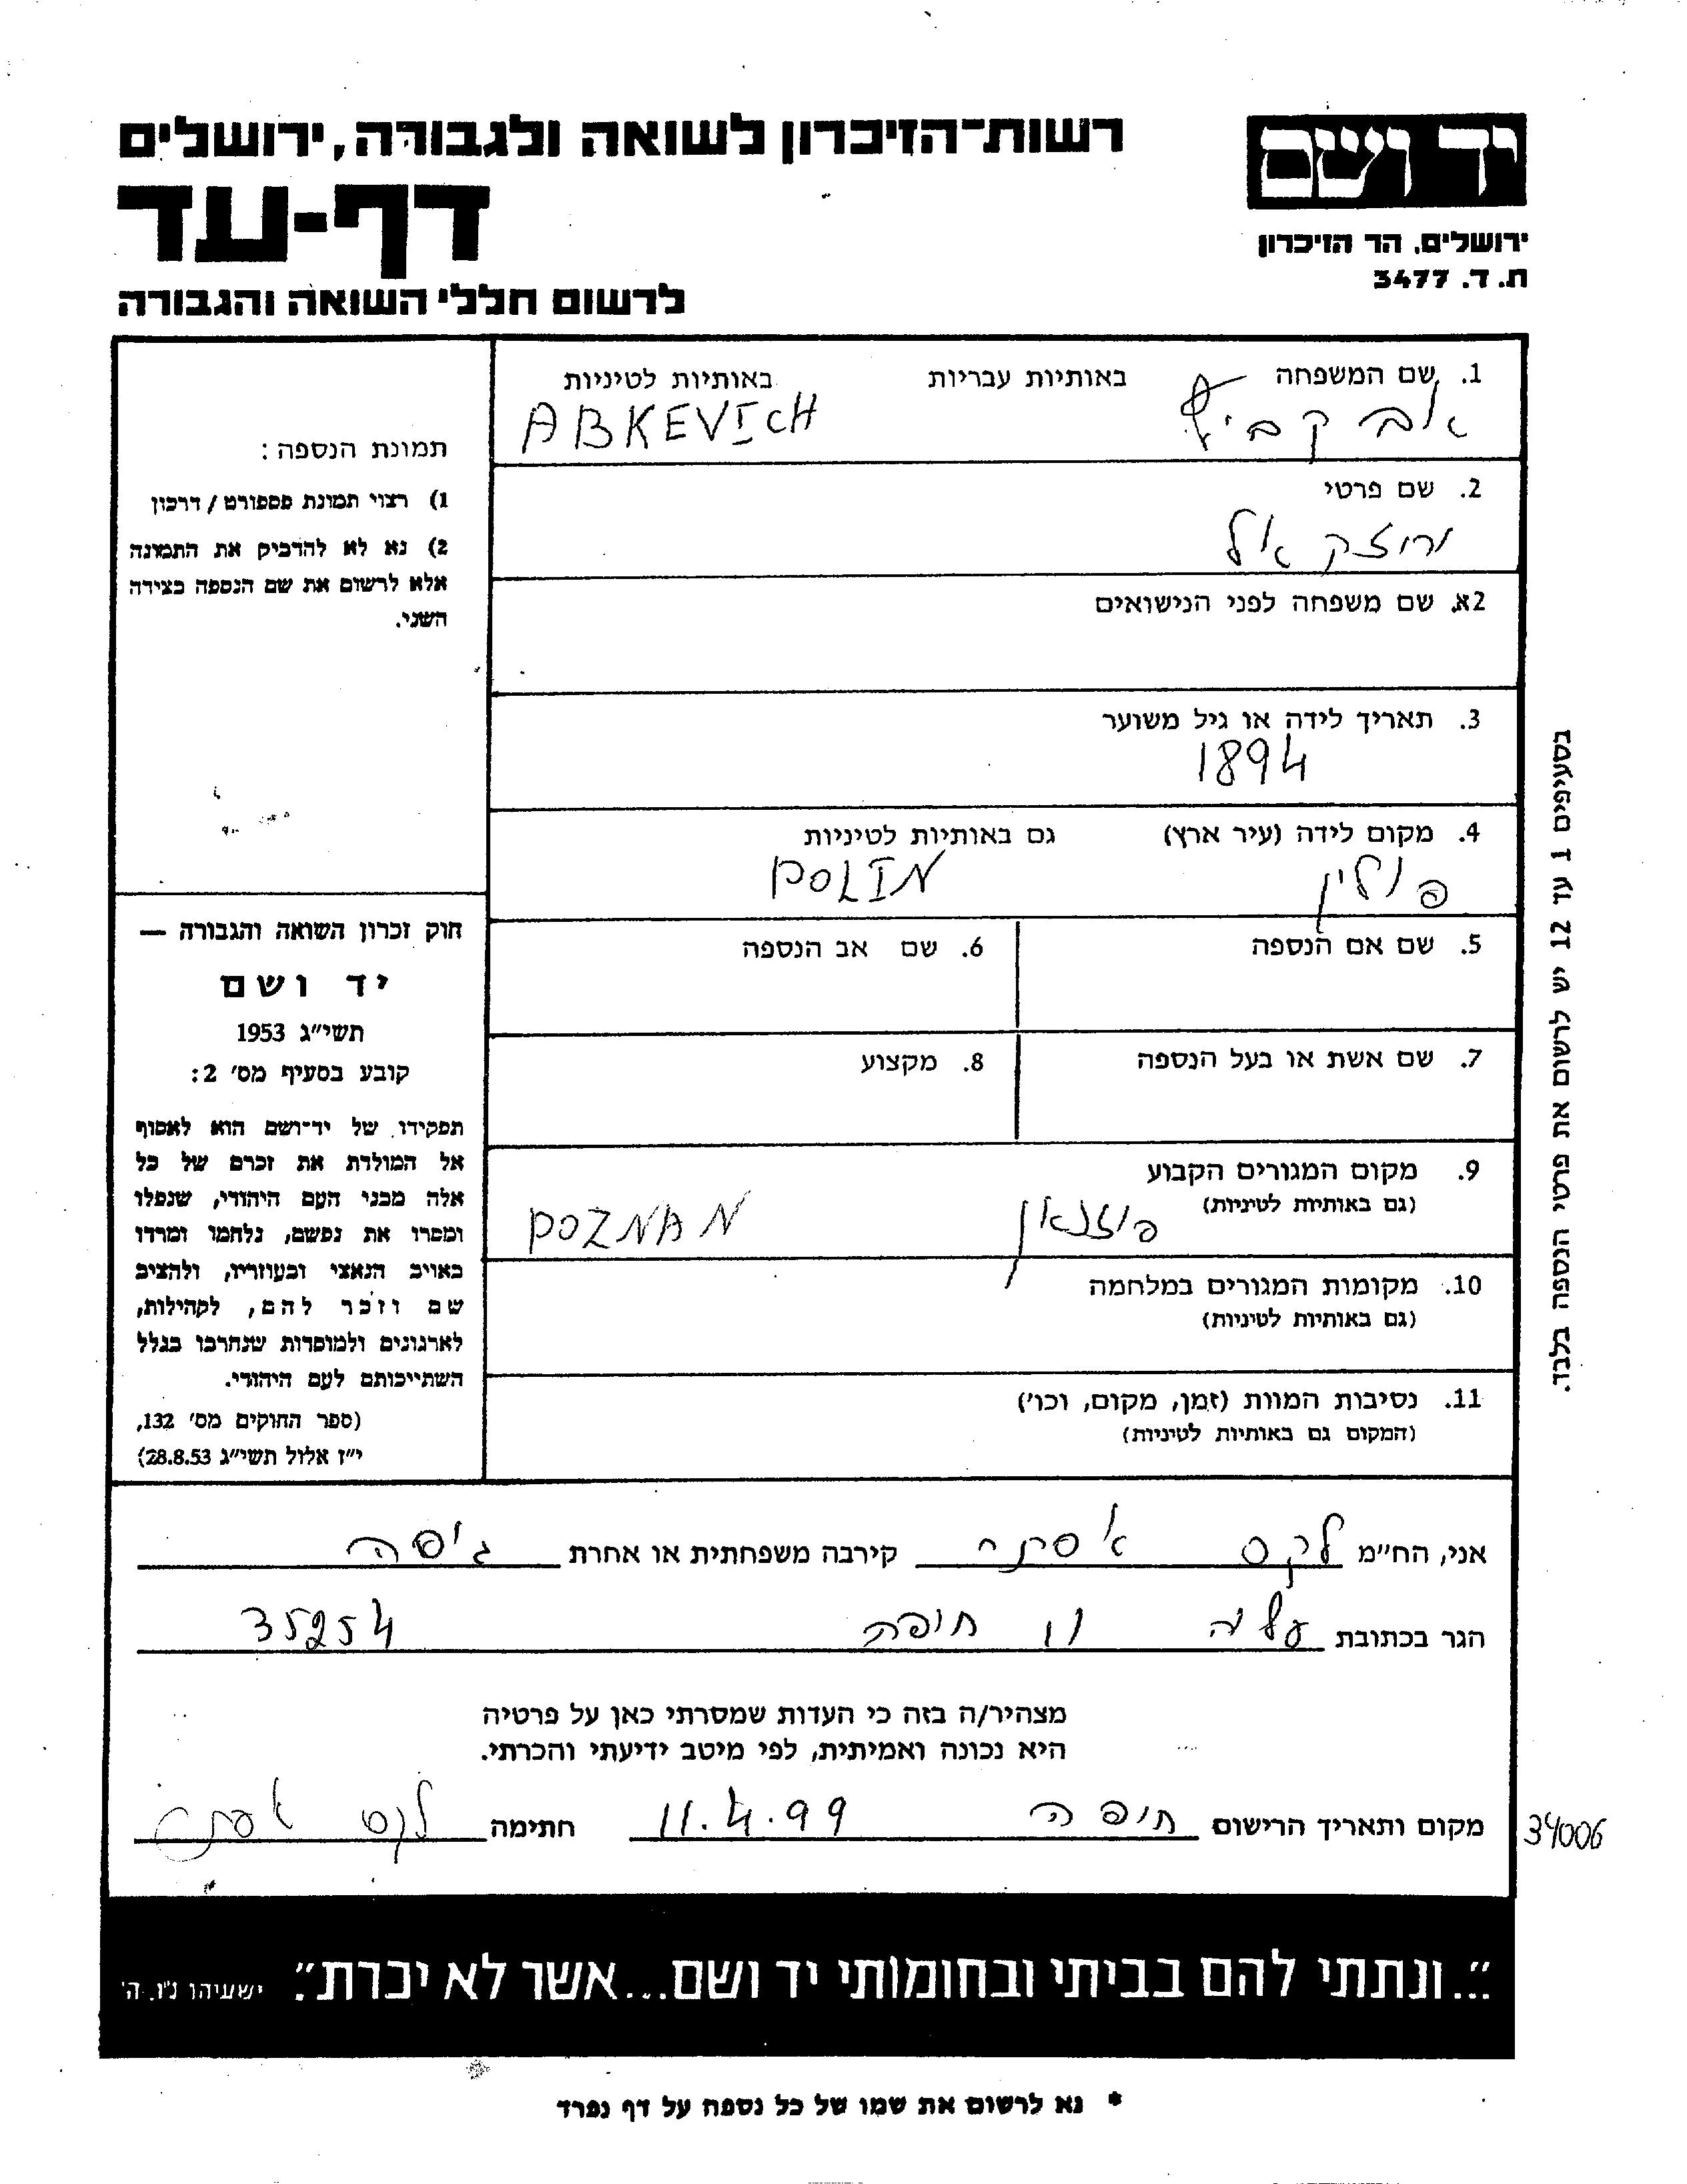 רשות-הזיכרון לשואה ולגבורה, ירושלים
דף-עד
לרשום חללי השואה והגבורה
יד ושם
ירושלים, הר הזיכרון
ת. ד. 3477
1. שם המשפחה באותיות עבריות באותיות לטיניות
אבקביץ ABKEVICH
2. שם פרטי
יחזקאל
2א. שם משפחה לפני הנישואים
3. תאריך לידה או גיל משוער
1894
4. מקום לידה (עיר ארץ) גם באותיות לטיניות
פולין POLIN
5. שם אם הנספה 6. שם אב הנספה
7. שם אשת או בעל הנספה 8. מקצוע
9. מקום המגורים הקבוע
(גם באותיות לטיניות)
פוזנאן POZNAN
10. מקומות המגורים במלחמה
(גם באותיות לטיניות)
11. נסיבות המוות (זמן, מקום, וכו')
(המקום גם באותיות לטיניות)
תמונת הנספה:
1) רצוי תמונת פספורט / דרכון
2) נא לא להדביק את התמונה
אלא לרשום את שם הנספה בצידה
השני.
חוק זכרון השואה והגבורה —
יד ושם
תשי"ג 1953
קובע בסעיף מס' 2:
תפקידו של יד-ושם הוא לאסוף
אל המולדת את זכרם של כל
אלה מבני העם היהודי, שנפלו
ומסרו את נפשם, נלחמו ומרדו
באויב הנאצי ובעוזריו, ולהציב
שם וזכר להם, לקהילות,
לארגונים ולמוסדות שנחרבו בגלל
השתייכותם לעם היהודי.
(ספר החוקים מס' 132,
י"ז אלול תשי"ג 28.8.53)
בסעיפים 1 עד 12 יש לרשום את פרטי הנספה בלבד.
אני, הח"מ לקס אסתר קירבה משפחתית או אחרת גיסה
הגר בכתובת עליה 11 חיפה 35254
מצהיר/ה בזה כי העדות שמסרתי כאן על פרטיה
היא נכונה ואמיתית, לפי מיטב ידיעתי והכרתי.
מקום ותאריך הרישום חיפה 11.4.99 חתימה לקס אסתר
34006
"...ונתתי להם בביתי ובחומותי יד ושם...אשר לא יכרת." ישעיהו נ"ו, ה'
* נא לרשום את שמו של כל נספה על דף נפרד